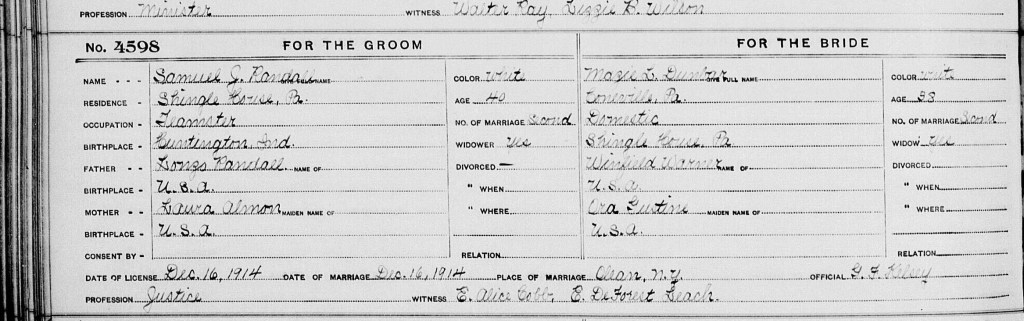 PROFESSION Minister WITNESS Walter Ray, Lizzie B. Wilson
No. 4598 FOR THE GROOM FOR THE BRIDE
NAME - - - Samuel J. Randall GIVE FULL NAME COLOR White Mazie L. Dunbar GIVE FULL NAME COLOR White
RESIDENCE - Shingle House, Pa. AGE 40 Coneville, Pa. AGE 38
OCCUPATION - Teamster NO. OF MARRIAGE Second Domestic NO. OF MARRIAGE Second
BIRTHPLACE - Huntington, Ind. WIDOWER yes Shingle House, Pa WIDOW yes
FATHER - - Randall NAME OF DIVORCED — Winfield Warner NAME OF DIVORCED
BIRTHPLACE - U.S.A. " WHEN U.S.A. " WHEN
MOTHER - - Laura Almon MAIDEN NAME OF " WHERE Ora Gustine MAIDEN NAME OF " WHERE
BIRTHPLACE - U.S.A. U.S.A.
CONSENT BY - RELATION RELATION
DATE OF LICENSE Dec. 16, 1914 DATE OF MARRIAGE Dec. 16, 1914 PLACE OF MARRIAGE Olean, N.Y. OFFICIAL G. F. Kelsey
PROFESSION Justice WITNESS E. Alice Cobb, E. DeForest Leach.